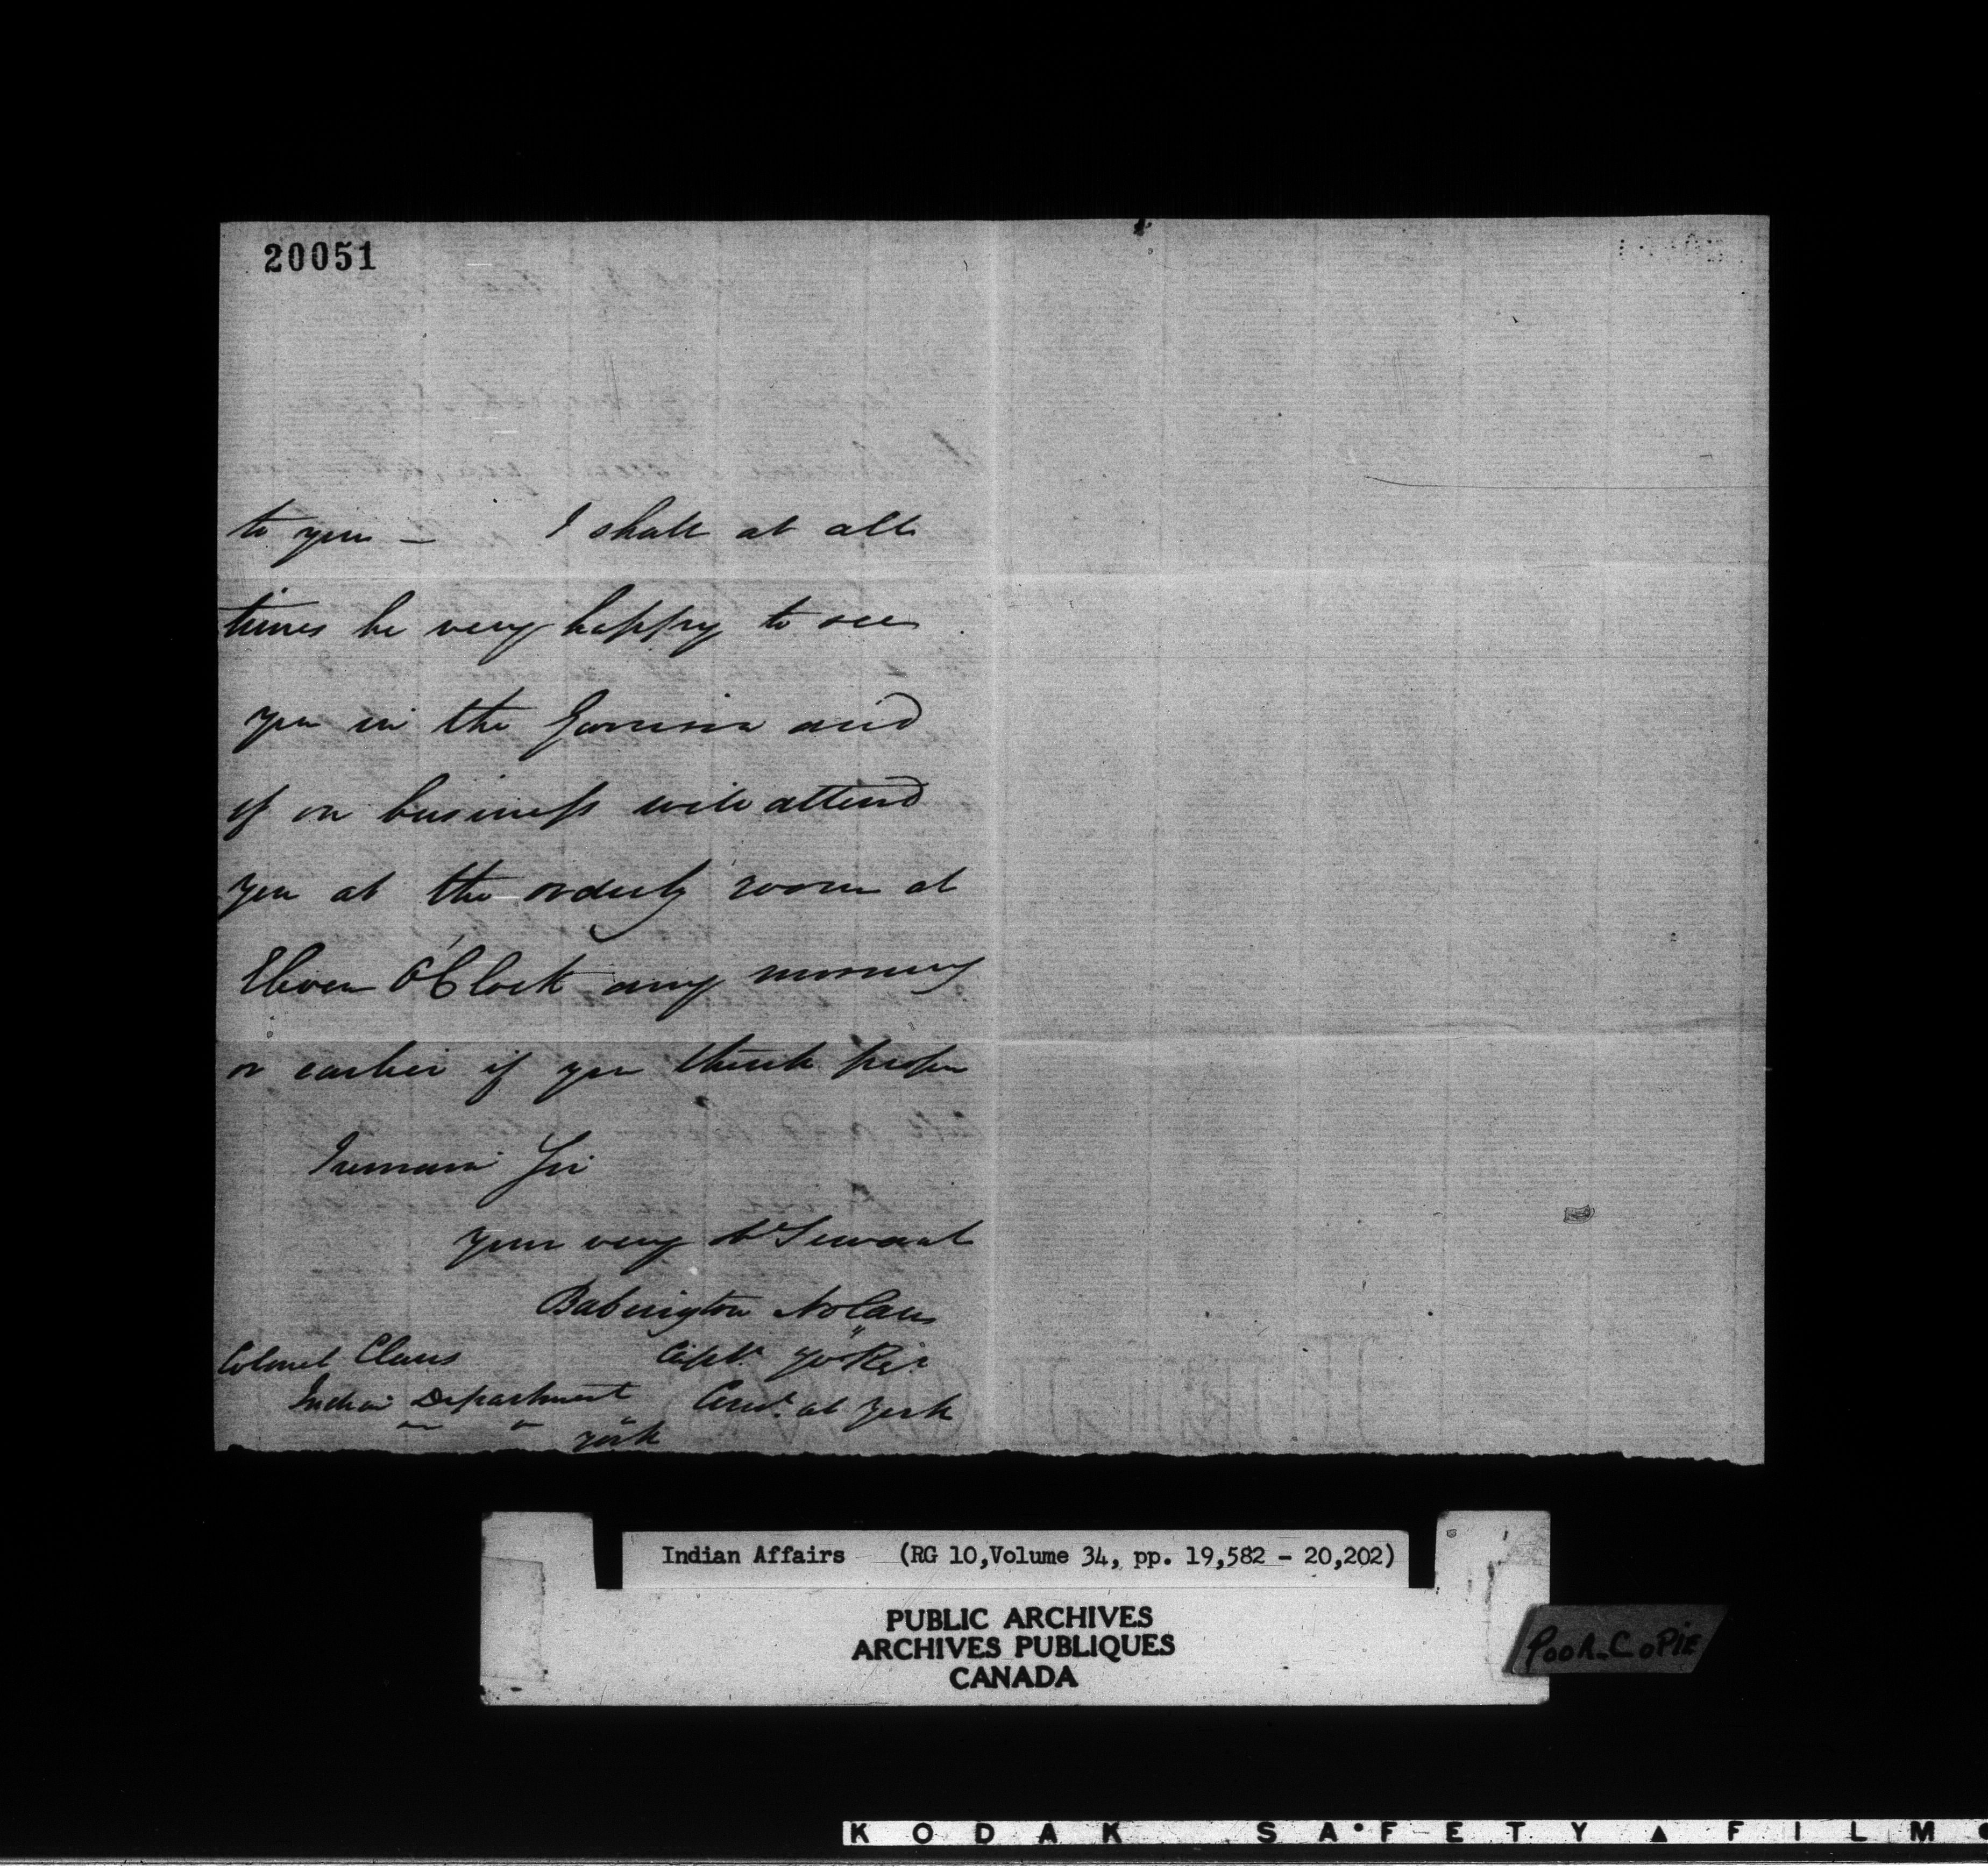 20051
to you — I shall at all
times be very happy to see
you in the Garrison and
if on business will attend
you at the orderly room at
Eleven O'Clock any morning
or earlier if you think proper
I remain Sir
your very ob Servant
Babington Nolan
Colonel Claus
Capt. 70 Reg.
Indian Department
Com. at York
York
Indian Affairs (RG 10, Volume 34, pp. 19,582 – 20,202)
PUBLIC ARCHIVES
ARCHIVES PUBLIQUES
CANADA
POOR COPIE
KODAK SAFETY FILM